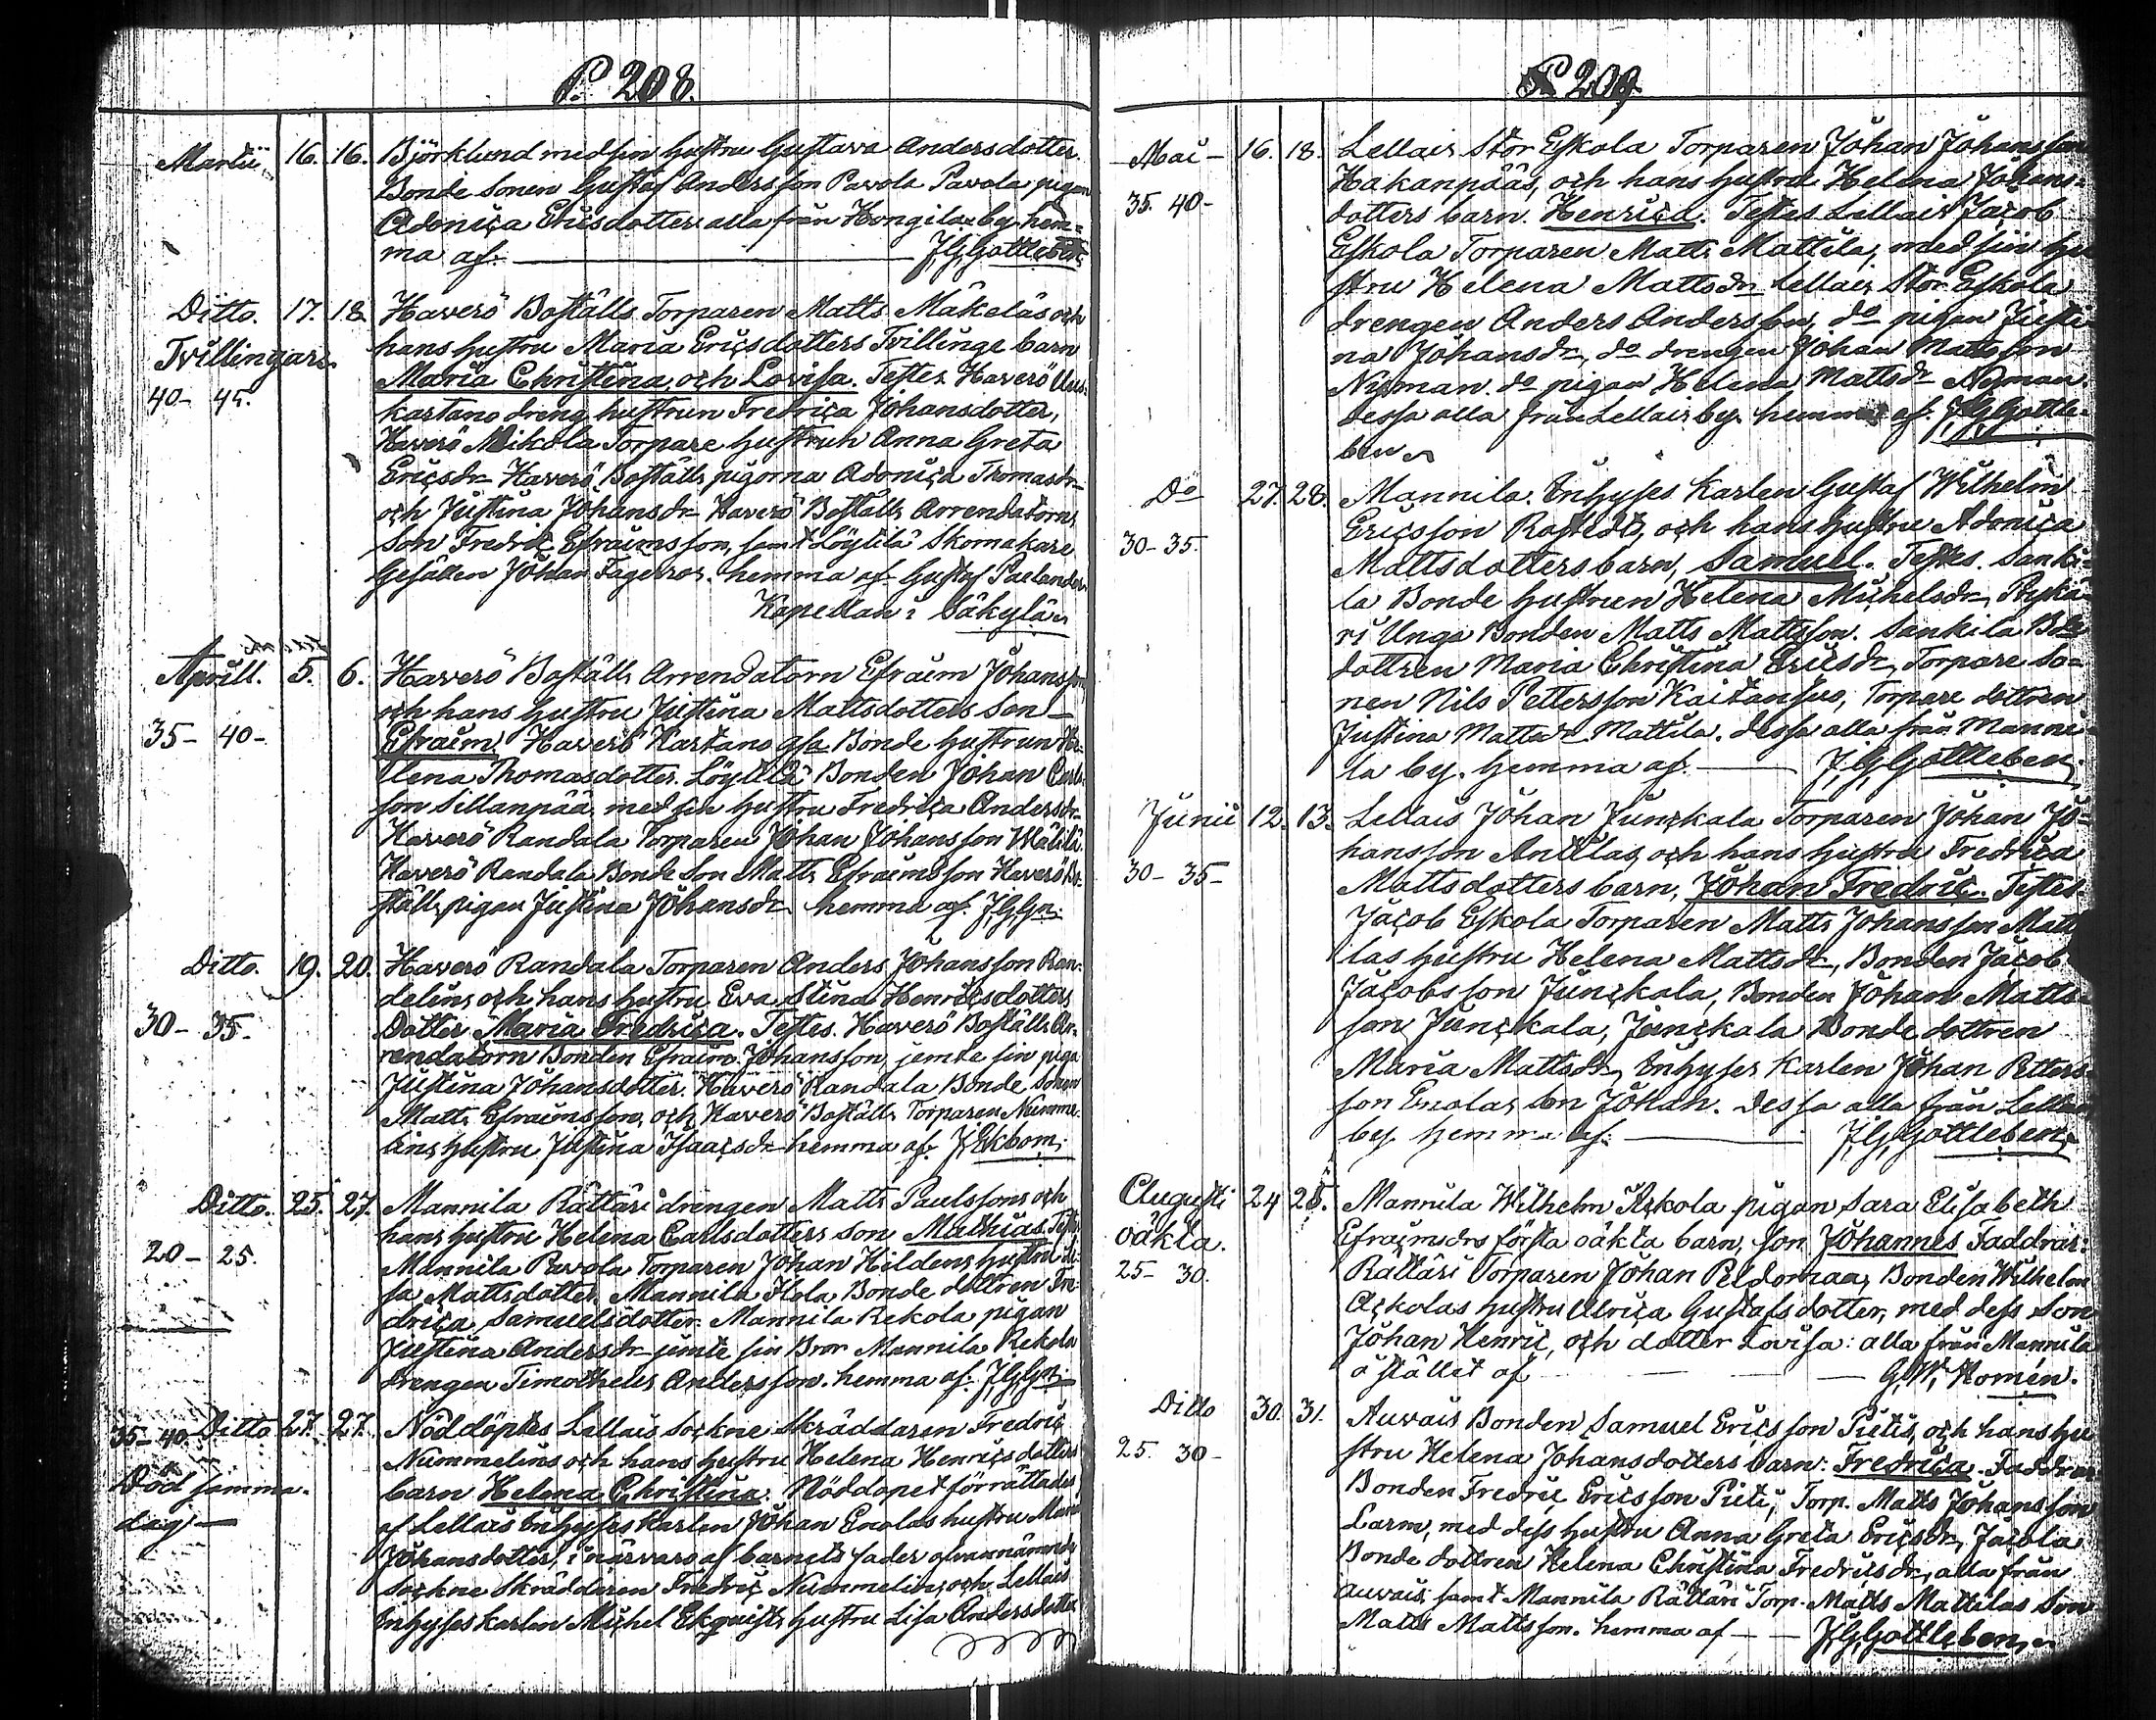 P. 208.
Martii 16. 16. Björklund med sin hustru Gustava Andersdotter.
Bonde sonen Gustaf Andersson Pavola Pavola pigan
Adoniça Ericsdotter. alla från Hongila by. hem=
ma af. J.G. Gottleben
Ditto. 17. 18. Haverö Boställs Torparen Matts Mäkeläs och
Tvillingar. hans hustru Maria Ericsdotters Tvillinge barn
40- 45. Maria Christina, och Lovisa. Testes Haverö
kartano dreng hustrun Fredrica Johansdotter,
Haverö Mikola Torpare hustrun Anna Greta
Ericsdr Haverö Boställs pigorna Adoniça Thomasdr
och Justina Johansdr Haverö Boställs Arrendatorns
Son Fredric Efraimsson, samt Löytilä Skomakare
Gesällen Johan Fagerros. hemma af Gustaf Paelander
Kapellan i Säkylä
Aprill. 5. 6. Haverö Boställs Arrendatorn Efraim Johansson
och hans hustru Justina Mattsdotters Son
35- 40- Efraim. Haverö Kartano Bonde hustrun He=
lena Thomasdotter. Löytilä Bonden Johan Carls
son Sillanpää med sin hustru Fredrica Andersdr
Haverö Randala Torparen Johan Johansson Wälilä
Haverö Randala Bonde Son Matts Efraimsson Haverö Bo=
ställs pigan Justina Johansdr hemma af. J.G.Gn.
Ditto. 19. 20. Haverö Randala Torparen Anders Johansson Ran=
delins och hans hustru Eva Stina Henricsdotters
30- 35. Dotter Maria Fredrica. Testes. Haverö Boställs Ar=
rendatorn Bonden Efraim Johansson, jemte sin piga
Justina Johansdotter. Haverö Randala Bonde Sonen
Matts Efraimsson, och Haverö Boställs Torparen Numme=
lins hustru Justina Isaacsdr hemma af J. Ekbom.
Ditto. 25. 27. Mannila Rättäri drengen Matts Paulssons och
hans hustru Helena Carlsdotters son Mathias. Testes
20- 25. Mannila Pavola Torparen Johan Hildens hustru Li=
sa Mattsdotter, Mannila Hola Bonde dottren Fre=
drica Samuelsdotter. Mannila Rekola pigan
Justina Andersdr jemte sin Bror Mannila Rekola
drengen Timotheus Andersson. hemma af. J.G.Gn.
35-40. Ditto 27. 27. Nöddöptes Lellais Sockne Skräddaren Fredric
Nummelins och hans hustru Helena Henricsdotters
Död samma barn Helena Christina. Nöddopet förrättades
dag af Lellais Inhyses Karlen Johan Enolas hustru Maria
Johansdotter, i närvaro af barnets fader ofvannämnde
Sockne Skräddaren Fredric Nummelin, och Lellais
Inhyses Karlen Michel Ekquists hustru Lisa Andersdotter
P. 209
Maii 16. 18. Lellais Stor Eskola Torparen Johan Johansson
Hakanpääs, och hans hustru Helena Johans=
35. 40- dotters barn. Henrica. Testes Lellais Jacob
Eskola Torparen Matts Mattila, med sin hu
stru Helena Mattsdr Lellais Stor Eskola
drengen Anders Andersson, do pigan Justi
na Johansdr, do drengen Johan Mattsson
Nyman. do pigan Helena Mattsdr Nyman.
Dessa alla från Lellais by. hemma af. J.G. Gottle=
ben
Do 27. 28. Mannila. Inhyses Karlen Gustaf Wilhelm
Ericsson Rostedts, och hans hustru Adoniça
30- 35. Mattsdotters barn, Samuel. Testes. Sanki=
la Bonde hustrun Helena Michelsdr, Rykä=
ri Unga Bonden Matts Mattsson. Sankila Bde
dottren Maria Christina Ericsdr, Torpare So=
nen Nils Pettersson Kaitansuo, Torpare dottren
Justina Mattsdr Mattila. dessa alla från Manni=
la by. hemma af. J.G. Gottleben
Junii 12. 13. Lellais Johan Junckala Torparen Johan Jo=
hansson Anttilas, och hans hustru Fredrica
30- 35- Mattsdotters barn, Johan Fredric. Testes.
Jacob Eskola Torparen Matts Johansson Matti
las hustru Helena Mattsdr, Bonden Jacob
Jacobsson Junckala, Bonden Johan Matts=
son Junckala, Junckala Bonde dottren
Maria Mattsdr, Inhyses Karlen Johan Petters=
son Enolas son Johan. Dessa alla från Lellais
by. hemma af. J.G. Gottleben
Augusti 24 25. Mannila Wilhelm Äckola pigan Sara Elisabeth
oäkta. Efraimsdrs första oäkta barn, son Johannes Faddrar:
25- 30. Rättäri Torparen Johan Peldomaa, Bonden Wilhelm
Äckolas hustru Ulrica Gustafsdotter, med dess Son
Johan Henric, och dotter Lovisa: alla från Mannila
å stället af G.W. Homén.
Ditto 30. 31. Auvais Bonden Samuel Ericsson Pietis, och hans hu
25. 30- stru Helena Johansdotters barn: Fredrica. Faddrar
Bonden Fredric Ericsson Pieti, Torp. Matts Johansson
Larm, med dess hustru Anna Greta Ericsdr, Jacola
Bonde dottren Helena Christina Fredricsdr, alla från
Auvais, samt Mannila Rättäri Torp. Matts Mattilas Son
Matts Mattsson. hemma af J.G. Gottleben